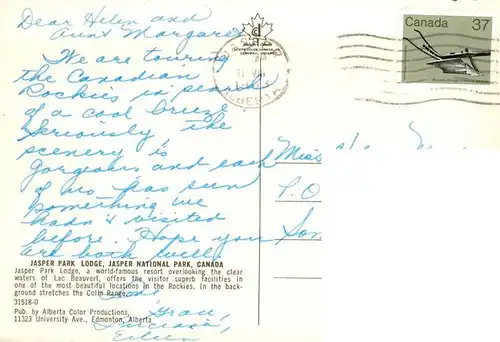 Dear Helen and
Aunt Margaret
We are touring
the Canadian
Rockies in search
of a cool breeze
Seriously the
scenery is
gorgeous and each
of us has seen
something we
hadn't visited
before. Hope you
are both well.
Love,
Grace,
Eileen
JASPER PARK LODGE, JASPER NATIONAL PARK, CANADA
Jasper Park Lodge, a world-famous resort overlooking the clear
waters of Lac Beauvert, offers the visitor superb facilities in
one of the most beautiful locations in the Rockies. In the back-
ground stretches the Colin Range.
31518-D
Pub. by Alberta Color Productions,
11323 University Ave., Edmonton, Alberta
Canada 37
Miss
P.O